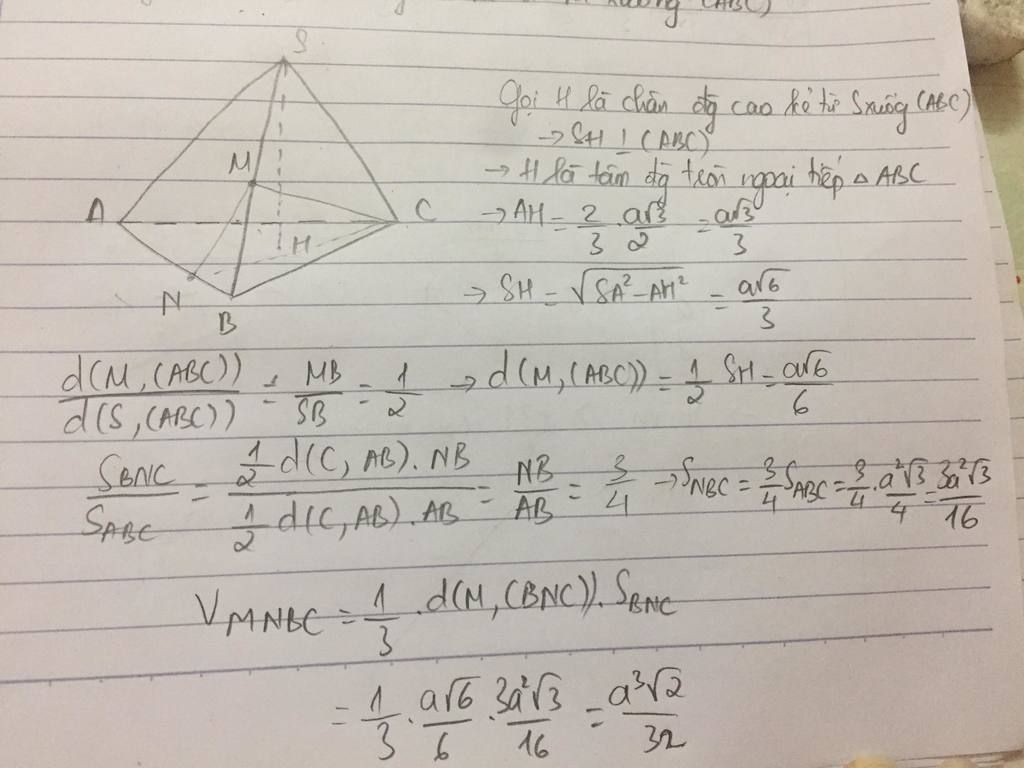 xuống (ABC)
S
Gọi H là chân đg cao kẻ từ S xuống (ABC)
→ SH ⊥ (ABC)
M
→ H là tâm đg tròn ngoại tiếp △ ABC
A
C
→ AH = 2/3 . a√3/2 = a√3/3
H
N
→ SH = √(SA² - AH²) = a√6/3
B
d(M, (ABC))/d(S, (ABC)) = MB/SB = 1/2 → d(M, (ABC)) = 1/2 SH = a√6/6
S_BNC/S_ABC = (1/2 d(C, AB) . NB)/(1/2 d(C, AB) . AB) = NB/AB = 3/4 → S_NBC = 3/4 S_ABC = 3/4 . a²√3/4 = 3a²√3/16
V_MNBC = 1/3 . d(M, (BNC)) . S_BNC
= 1/3 . a√6/6 . 3a²√3/16 = a³√2/32